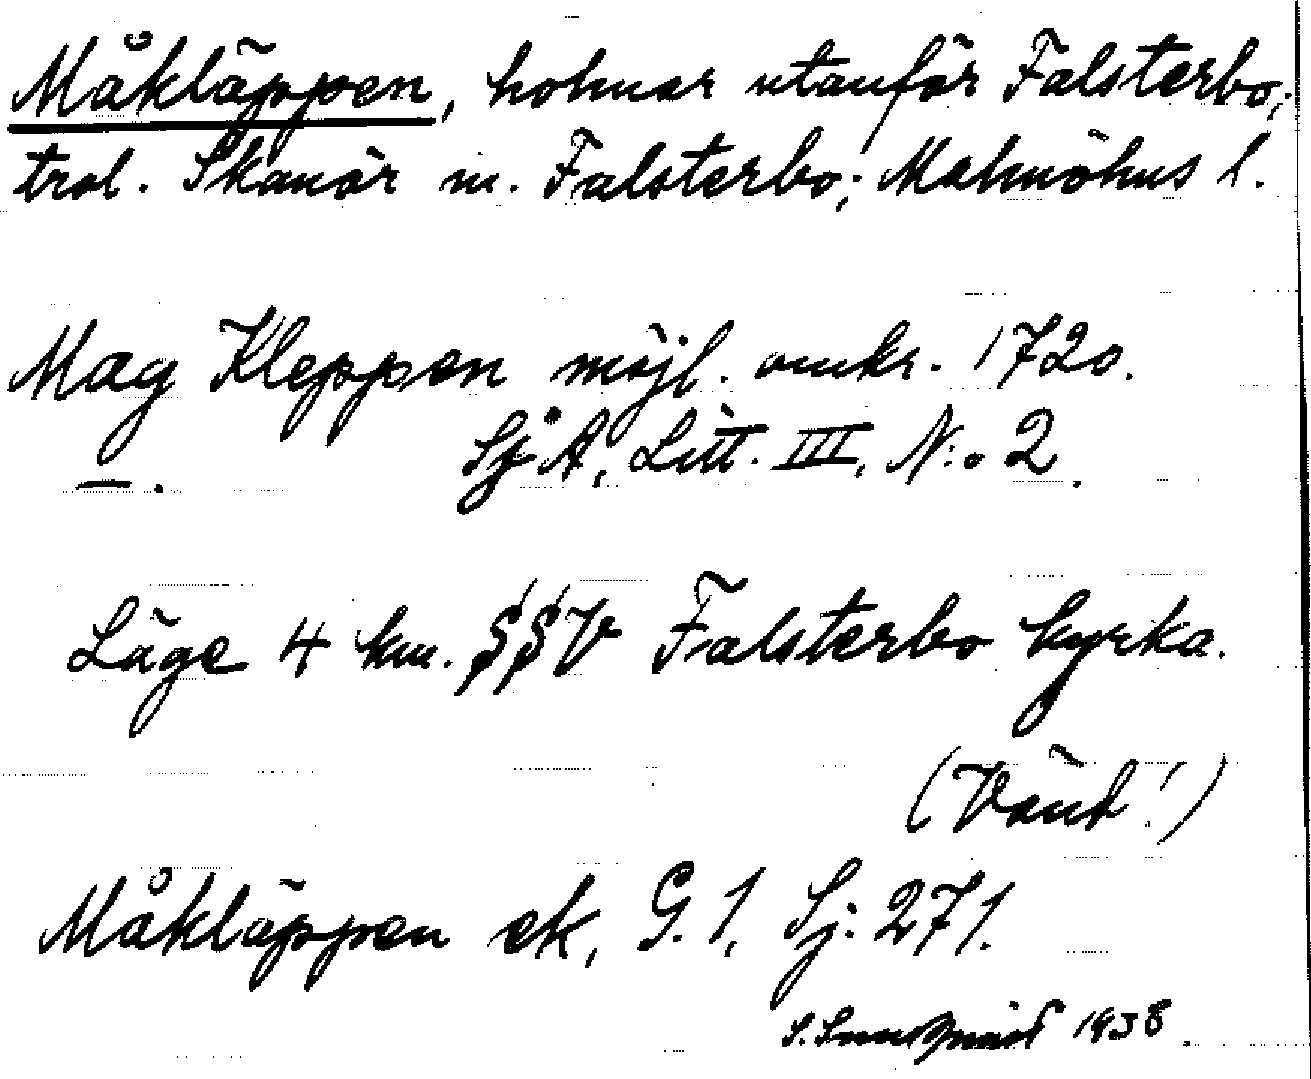 Måkläppen, holmar utanför Falsterbo;
trol. Skanör m. Falsterbo; Malmöhus l.
Mag Kleppen möjl. omkr. 1720.
— . SjA, Litt. III, N:o 2.
Läge 4 km. SSV Falsterbo kyrka.
(Vänd!)
Måkläppen ek, G. 1, Sj. 271.
S. 1938.